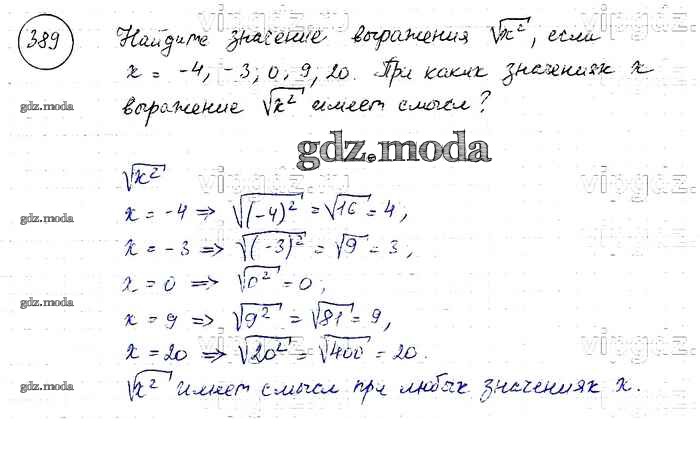 389 Найдите значение выражения √x², если
x = -4, -3, 0, 9, 20. При каких значениях x
выражение √x² имеет смысл?
gdz.moda
gdz.moda
√x²
x = -4 => √(-4)² = √16 = 4,
gdz.moda
x = -3 => √(-3)² = √9 = 3,
x = 0 => √0² = 0,
gdz.moda
x = 9 => √9² = √81 = 9,
x = 20 => √20² = √400 = 20.
gdz.moda
√x² имеет смысл при любых значениях x.
vipgdz.ru
vipgdz.ru
vipgdz
vipgdz